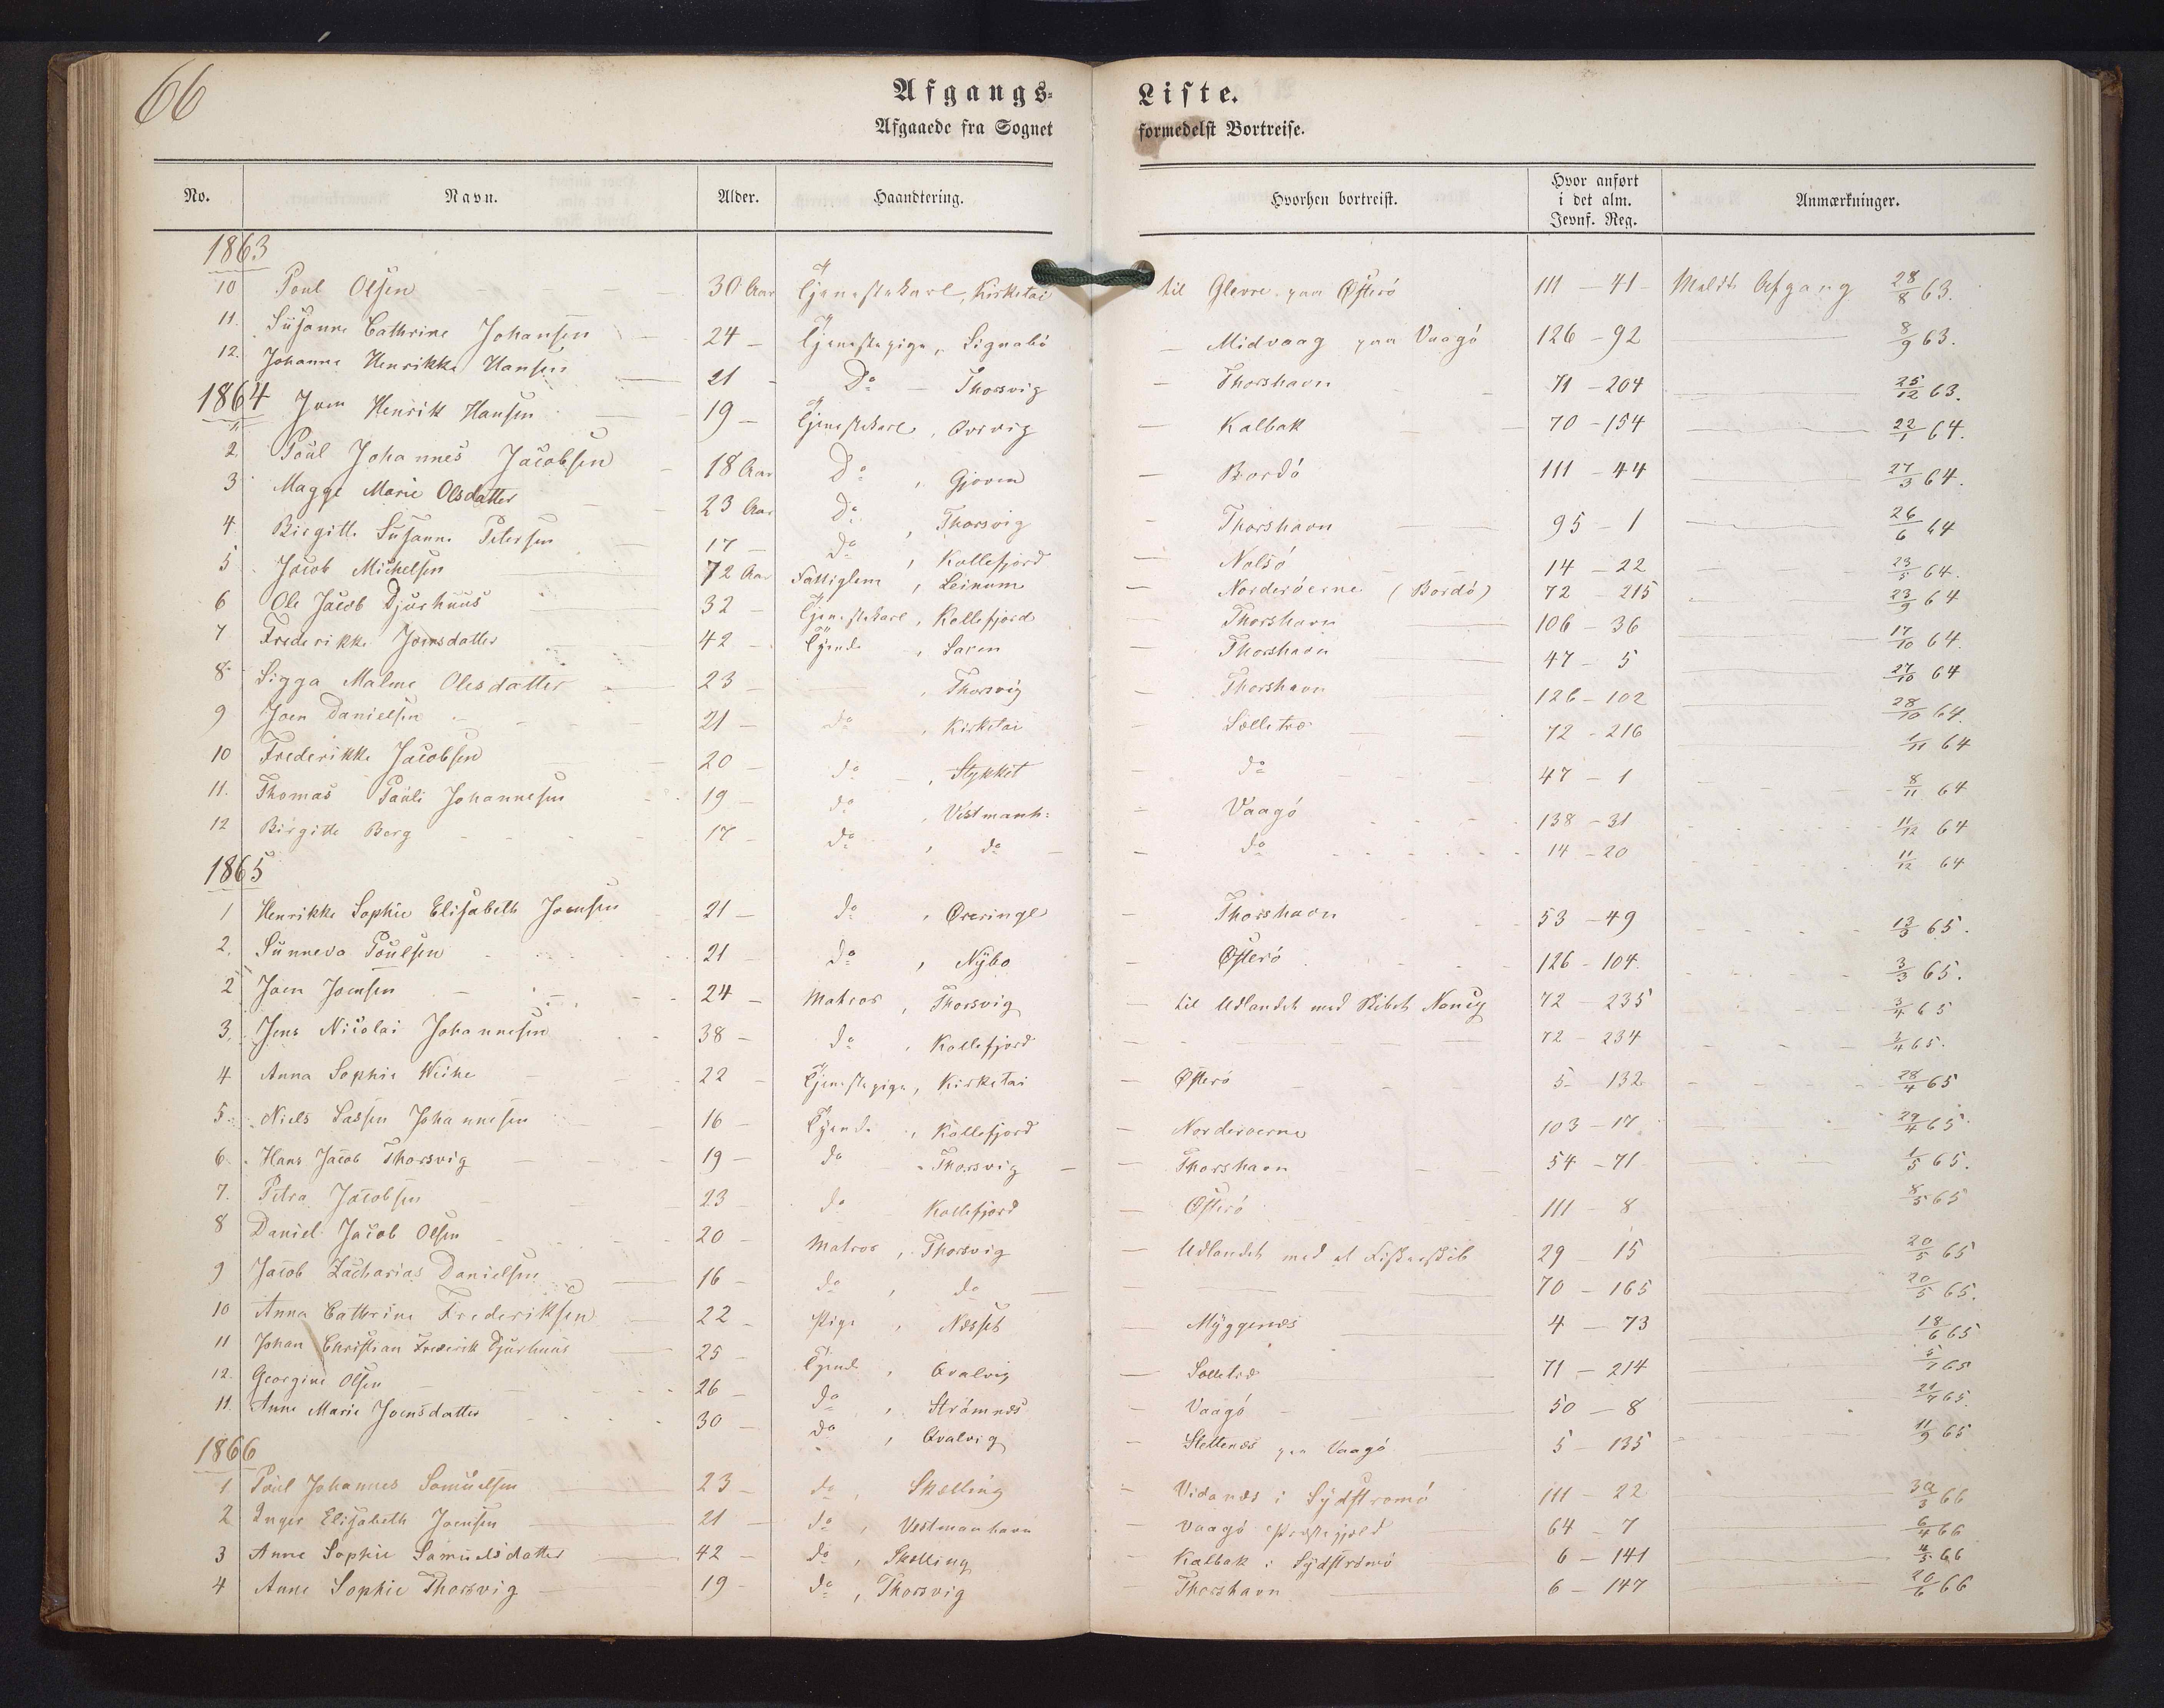 66
Afgangs- Liste.
Afgaaede fra Sognet formedelst Bortreise.
No. Navn. Alder. Haandtering. Hvorhen bortreist. Hvor anført i det alm. Jevnf. Reg. Anmærkninger.
1863
10 Poul Olsen 30 Aar Tjenestekarl, Kirketai til Glevre paa Østerö 111 - 41 Meldt Afgang 28/8 63.
11. Susanne Cathrine Johansen 24 - Tjenestepige, Signabö - Midvaag paa Vaagö 126 - 92 8/9 63.
12. Johanne Henrikke Hansen 21 - Do - Thorsvig - Thorshavn 71 - 204 25/12 63.
1864
1 Joen Henrik Hansen 19 - Tjenestekarl, Qvivig - Kalbak 70 - 154 22/1 64.
2 Poul Johannes Jacobsen 18 Aar Do, Gjoven - Bordö 111 - 44 27/3 64.
3 Magge Marie Olsdatter 23 Aar Do, Thorsvig - Thorshavn 95 - 1 26/6 64
4 Birgitte Susanne Petersen 17 - Do, Kollefjord - Nolsö 14 - 22 23/5 64.
5 Jacob Michelsen 72 Aar Fattiglem, Leinum - Norderöerne (Bordö) 72 - 215 23/9 64
6 Ole Jacob Djurhuus 32 - Tjenestekarl, Kollefjord Thorshavn 106 - 36 17/10 64.
7 Frederikke Joensdatter 42 - Tyende, Saren Thorshavn 47 - 5 27/10 64
8 Sigga Malene Olesdatter 23 - , Thorsvig - Thorshavn 126 - 102 28/10 64.
9 Joen Danielsen 21 - do, Kirketai - Selletræ 72 - 216 1/11 64
10 Frederikke Jacobsen 20 - do -, Stykket - do 47 - 1 8/11 64
11. Thomas Pauli Johannesen 19 - do, Vestmanh: - Vaagö 138 - 31 11/12 64
12 Birgitte Berg 17 - do, do - do 14 - 20 11/12 64
1865
1 Henrikke Sophie Elisabeth Joensen 21 - do, Øreringe - Thorshavn 53 - 49 13/3 65.
2. Sunneva Poulsen 21 do, Nybo - Østerö 126 - 104 3/3 65.
2 Joen Joensen 24 - Matros, Thorsvig - til Udlandet med Skibet Nancy 72 - 235 3/4 65
3. Jens Nicolai Johannesen 38 - do, Kollefjord 72 - 234 3/4 65.
4 Anna Sophie Weihe 22 - Tjenestepige, Kirketai - Østerö 5 - 132 28/4 65
5. Niels Sassen Johannesen 16 - Tyende, Kollefjord - Norderoerne 103 - 17 29/4 65
6. Hans Jacob Thorsvig 19 - do - Thorsvig - Thorshavn 54 - 71 1/5 65.
7. Petra Jacobsen 23 do Kollefjord - Østerö 111 - 8 8/5 65
8 Daniel Jacob Olsen 20 - Matros, Thorsvig - Udlandet med et Fiskerskib 29 - 15 20/5 65
9 Jacob Zacharias Danielsen 16 - do, do 70 - 165 20/5 65.
10 Anna Cathrine Frederiksen 22 - Pige, Næsset - Myggenæs 4 - 73 18/6 65
11 Johan Christian Frederik Djurhuus 25 - Tyende, Qvalvig - Selletræ 71 - 214 5/7 65
12. Georgine Olsen 26 - do, Strömnæs - Vaagö 50 - 8 21/7 65.
11 Anne Marie Joensdatter 30 - do, Qvalvig - Slettenæs paa Vaagö 5 - 135 11/9 65
1866
1 Poul Johannes Samuelsen 23 - do, Skælling - Vidanæs i Sydströmö 111 - 22 30/3 66
2 Inger Elisabeth Joensen 21 - do, Vestmanhavn - Vaagö Præstegjeld 64 - 7 6/4 66
3 Anne Sophie Samuelsdatter 42 - do, Skælling - Kalbak i Sydströmö 6 - 141 4/5 66
4 Anne Sophie Thorsvig 19 - do, Thorsvig Thorshavn 6 - 147 20/6 66